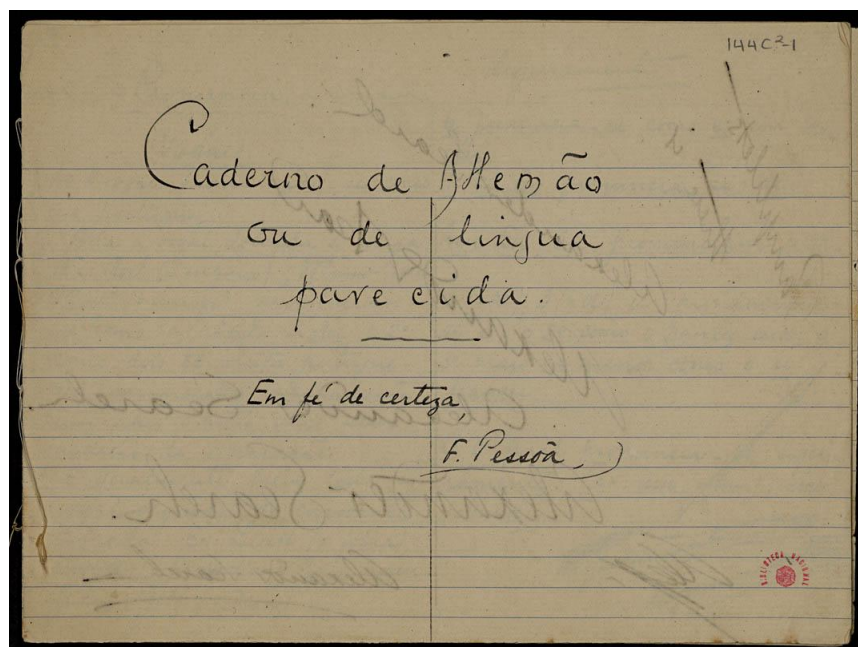 144C²-1
Caderno de Allemão
ou de lingua
parecida.
Em fé de certeza,
F. Pessôa.
BIBLIOTECA NACIONAL